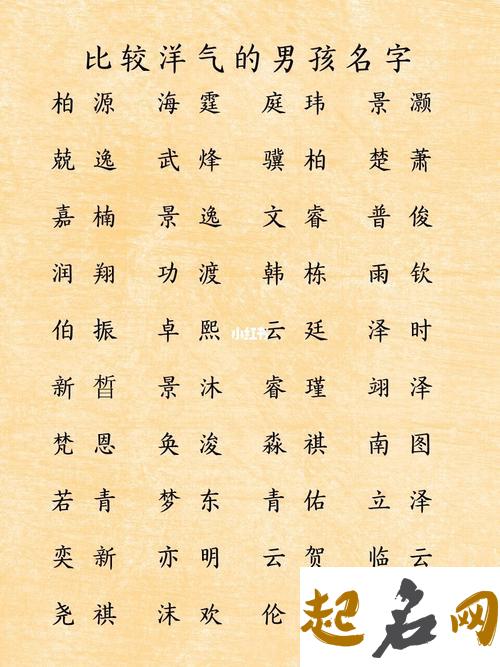 比较洋气的男孩名字
柏源 海霆 庭玮 景灏
兢逸 武烽 骥柏 楚萧
嘉楠 景逸 文睿 普俊
润翔 功渡 韩栋 雨钦
伯振 卓熙 云廷 泽时
小红书
新皙 景沐 睿瑾 翊泽
梵恩 奂浚 淼祺 南图
若青 梦东 青佑 立泽
奕新 亦明 云贺 临云
尧祺 沫欢 伦
起名网